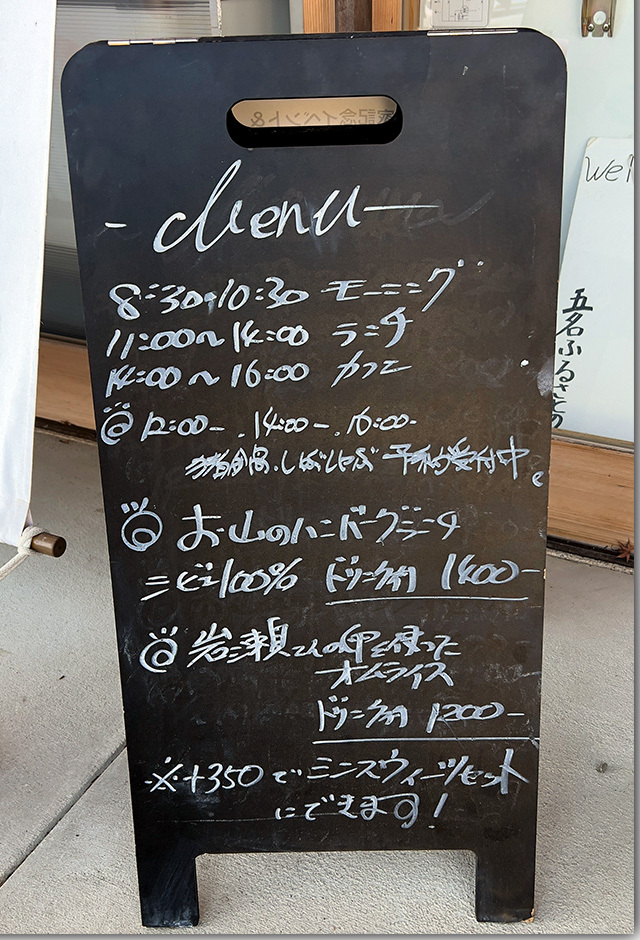 家記念イベント&
- Menu -
8:30~10:30 モーニング
11:00~14:00 ランチ
14:00~16:00 カフェ
◎12:00-.14:00-.16:00-
猪鍋.しぼしゃぶ 予約受付中。
◎お山のハンバーグランチ
ジビエ100% ドリンク付 1400-
◎岩瀬さんの卵を使った
オムライス
ドリンク付 1200-
※+350でミニスウィーツセット
にできます!
Wel
五名ふるさとの